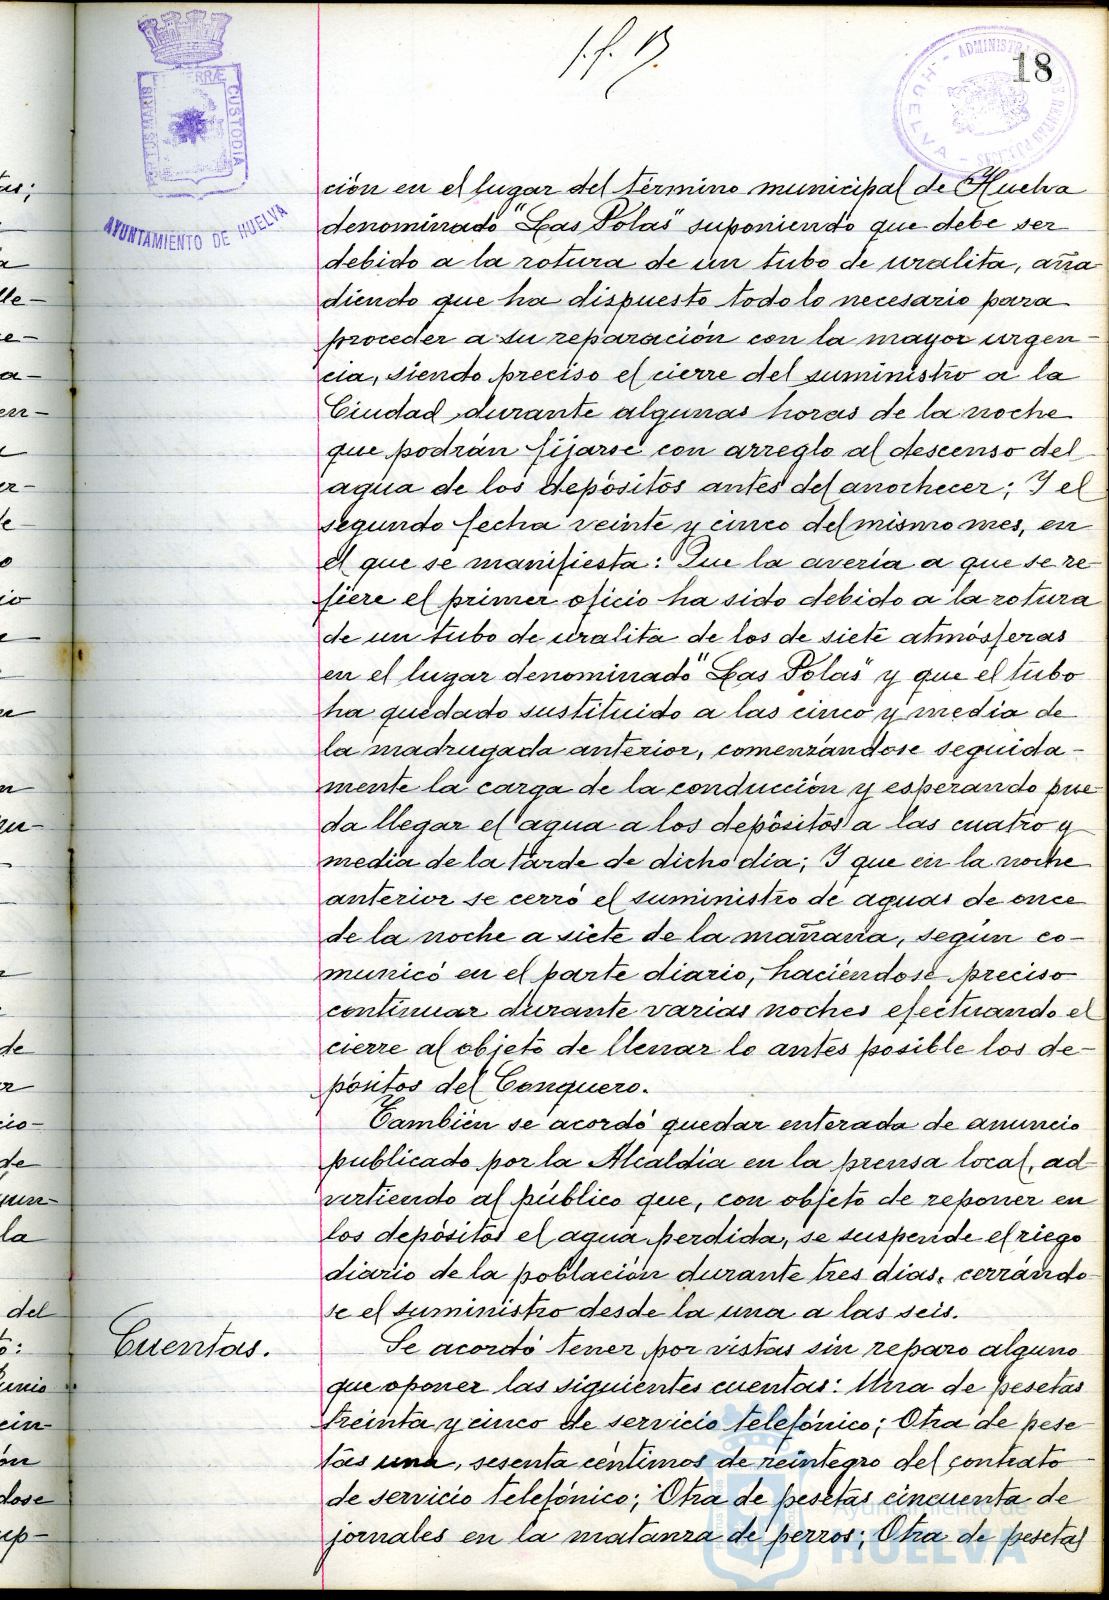 18
PORTUS MARIS ET TERRÆ CUSTODIA
AYUNTAMIENTO DE HUELVA
HUELVA
ción en el lugar del término municipal de Huelva
denominado "Las Polas" suponiendo que debe ser
debido a la rotura de un tubo de uralita, aña
diendo que ha dispuesto todo lo necesario para
proceder a su reparación con la mayor urgen-
cia, siendo preciso el cierre del suministro a la
Ciudad durante algunas horas de la noche
que podrán fijarse con arreglo al descenso del
agua de los depósitos antes del anochecer; Y el
segundo fecha veinte y cinco del mismo mes, en
el que se manifiesta: Que la avería a que se re-
fiere el primer oficio ha sido debido a la rotura
de un tubo de uralita de los de siete atmósferas
en el lugar denominado "Las Polas" y que el tubo
ha quedado sustituido a las cinco y media de
la madrugada anterior, comenzándose seguida-
mente la carga de la conducción y esperando pue-
da llegar el agua a los depósitos a las cuatro y
media de la tarde de dicho día; Y que en la noche
anterior se cerró el suministro de aguas de once
de la noche a siete de la mañana, según co-
municó en el parte diario, haciéndose preciso
continuar durante varias noches efectuando el
cierre al objeto de llenar lo antes posible los de-
pósitos del Conquero.
También se acordó quedar enterada de anuncio
publicado por la Alcaldía en la prensa local, ad-
virtiendo al público que, con objeto de reponer en
los depósitos el agua perdida, se suspende el riego
diario de la población durante tres días, cerrándo-
se el suministro desde la una a las seis.
Cuentas.
Se acordó tener por vistas sin reparo alguno
que oponer las siguientes cuentas: Una de pesetas
treinta y cinco de servicio telefónico; Otra de pese-
tas una, sesenta céntimos de reintegro del contrato
de servicio telefónico; Otra de pesetas cincuenta de
jornales en la matanza de perros; Otra de pesetas
Ayuntamiento de
HUELVA